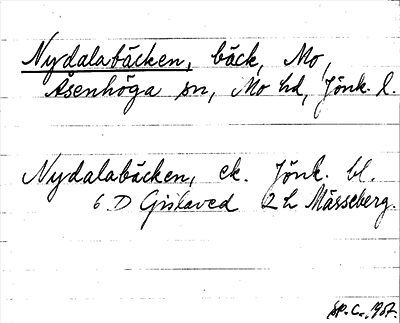 Nydalabäcken, bäck, Mo,
Åsenhöga sn, Mo hd, Jönk. l.
Nydalabäcken, ek. Jönk. bl.
6 D Gislaved 2 h Mässeberg.
1987.